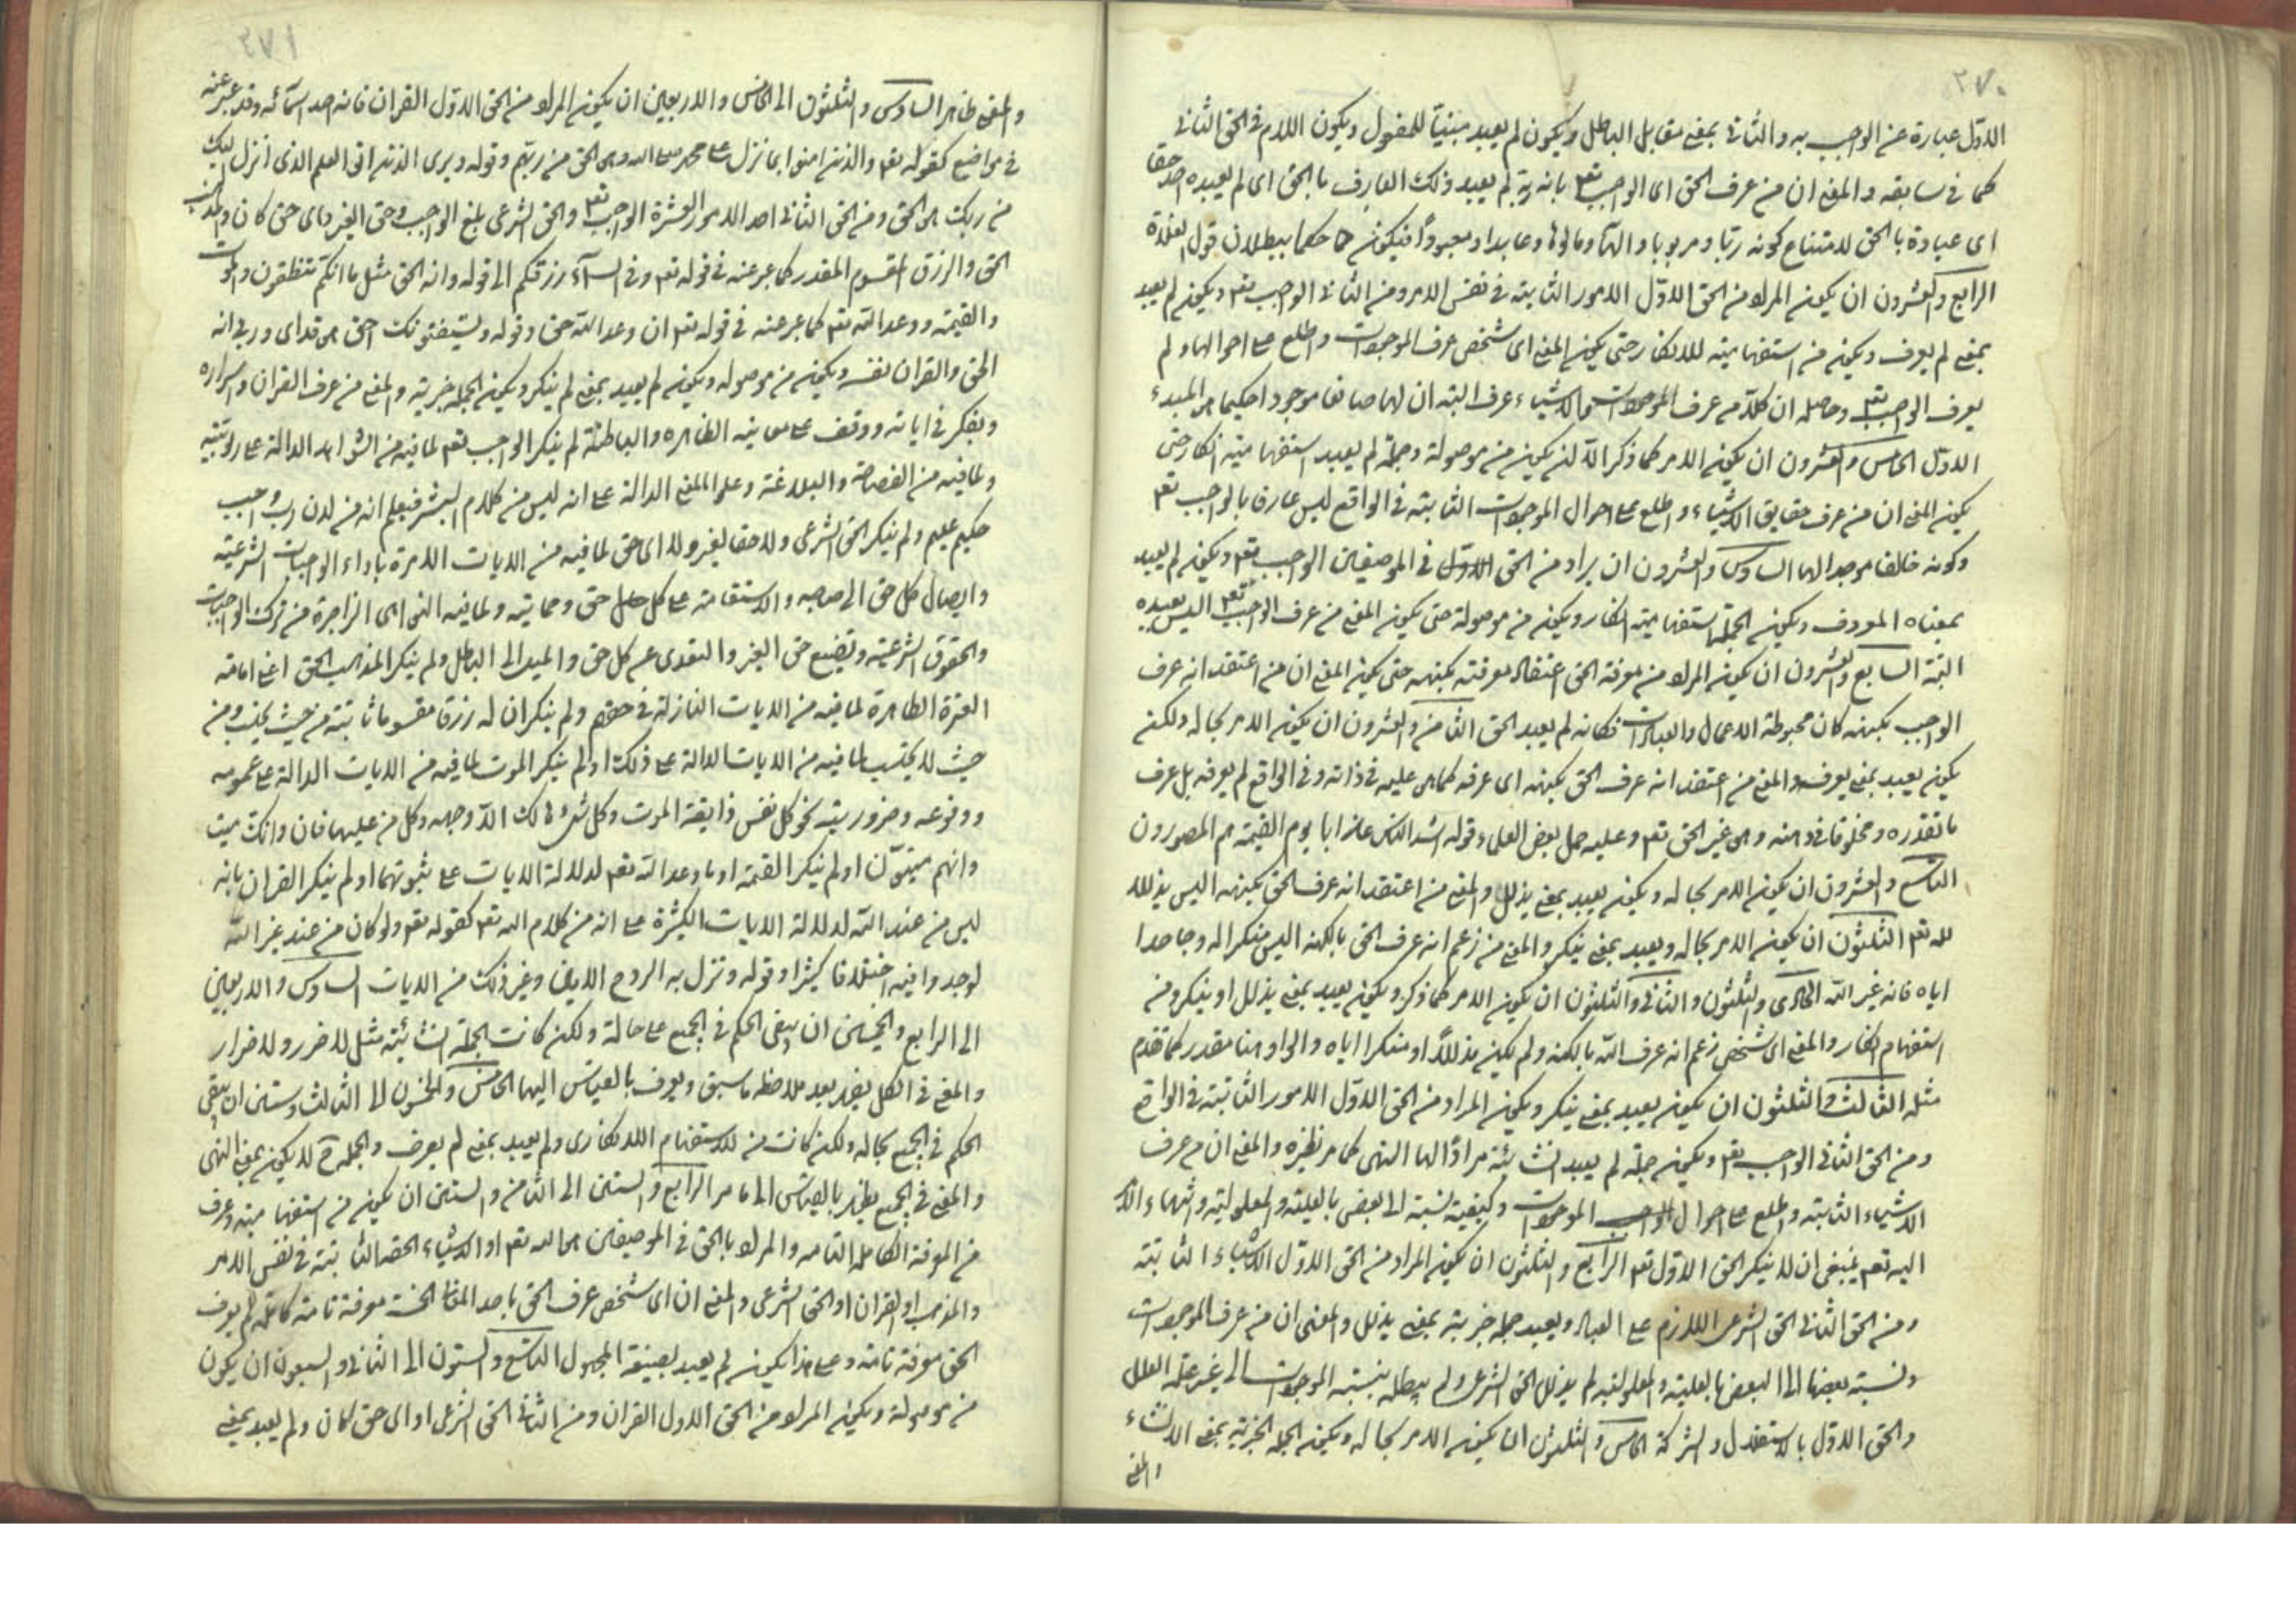 ٣٧٠
الاول عبارة عن الواجب به والثانى بمعنى مقابل الباطل ويكون لم يعبد مبنيا للمفعول ويكون اللام فى الحق الثانى
كما فى سابقه والمعنى ان من عرف الحق اى الواجب تعم بانه لم يعبد ذلك العارف بالحق اى لم يعبده احد حقا
اى عبادة بالحق لامتناع كونه ربا ومربوبا والها ومالوها وعابدا ومعبودا فيكون حكما ببطلان قول الغلاة
الرابع والعشرون ان يكون المراد من الحق الاول الامور الثابتة فى نفس الامر ومن الثانى الواجب تعم ويكون لم يعبد
بمعنى لم يعرف ويكون من استفهامية للانكار حتى يكون المعنى اى شخص عرف الموجودات واطلع على احوالها ولم
يعرف الواجب تعم وحاصله ان كلا من عرف الموجودات والاشياء عرف البتة ان لها صانعا موجودا حكيما هو المبدء
الاول الخامس والعشرون ان يكون الامر كما ذكر الا ان يكون من موصولة وجملة لم يعبد استفهامية انكار حتى
يكون المعنى ان من عرف حقايق الاشياء واطلع على احوال الموجودات الثابتة فى الواقع ليس عارفا بالواجب تعم
وكونه خالقا موجدا لها السادس والعشرون ان يراد من الحق الاول فى الموضعين الواجب تعم ويكون لم يعبد
بمعناه المعروف ويكون الجملة استفهامية انكار ويكون من موصولة حتى يكون المعنى من عرف الواجب تعم اليس يعبده
البتة السابع والعشرون ان يكون المراد من معرفة الحق اعتقاد معرفته بكنهه حتى يكون المعنى ان من اعتقد انه عرف
الواجب بكنهه كان محبوطة الاعمال والعبادات فكانه لم يعبد الحق الثامن والعشرون ان يكون الامر بحاله ولكن
يكون يعبد بمعنى يعرف والمعنى من اعتقد انه عرف الحق بكنهه اى عرفه كما هو عليه فى ذاته وفى الواقع لم يعرفه بل عرف
ما تقدره ومخلوقا فى ذهنه وهو غير الحق تعم وعليه حمل بعض العلماء قوله اشد الناس عذابا يوم القيمة هم المصورون
التاسع والعشرون ان يكون الامر بحاله ويكون يعبد بمعنى يذلل والمعنى من اعتقد انه عرف الحق بكنهه اليس يذلل
لله تعم الثلثون ان يكون الامر بحاله ويعبد بمعنى ينكر والمعنى من زعم انه عرف الحق بالكنه اليس منكرا له وجاحدا
اياه فانه غير الله الحادى والثلثون والثانى والثلثون ان يكون الامر كما ذكر ويكون يعبد بمعنى يذلل او ينكر ومن
استفهام انكار والمعنى اى شخص زعم انه عرف الله بالكنه ولم يكن مذللا او منكرا اياه والواو هنا مقدر كما تقدم
مثله الثالث والثلثون ان يكون يعبد بمعنى ينكر ويكون المراد من الحق الاول الامور الثابتة فى الواقع
ومن الحق الثانى الواجب تعم ويكون جملة لم يعبد انشائية مرادا لها النهى كما مر نظيره والمعنى ان من عرف
الاشياء الثابتة واطلع على احوال الموجودات وكيفية نسبة الى البعض بالعلية والمعلولية وانتهاء الكل
اليه تعم ينبغى ان لا ينكر الحق الاول تعم الرابع والثلثون ان يكون المراد من الحق الاول الاشياء الثابتة
ومن الحق الثانى الحق الشرعى اللازم على العباد ويعبد جملة خبرية بمعنى يذلل والمعنى ان من عرف الموجودات
ونسبة بعضها الى البعض بالعلية والمعلولية لم يذلل الحق الشرعى ولم يبطله بنسبة الموجودات الى غير علة العلل
والحق الاول بالاستقلال والشركة الخامس والثلثون ان يكون الامر بحاله ويكون الجملة الخبرية بمعنى الانشاء
والمعنى
٣٧١
والمعنى ظاهر السادس والثلثون الى الخامس والاربعين ان يكون المراد من الحق الاول القران فانه احد اسمائه وقد عبر عنه
فى مواضع كقوله تعم والذين امنوا بما نزل على محمد صلى الله وهو الحق من ربهم وقوله ويرى الذين اوتوا العلم الذى انزل اليك
من ربك هو الحق ومن الحق الثانى احد الامور العشرة الواجب تعم والحق الشرعى بمعنى الواجب وحق الغير واى حق كان والمذهب
الحق والرزق المقسوم المقدر كما عبر عنه فى قوله تعم وفى السماء رزقكم الى قوله وانه لحق مثل ما انكم تنطقون والموت
والقيمة ووعد الله تعم كما عبر عنه فى قوله تعم ان وعد الله حق وقوله ويستنبئونك احق هو قل اى وربى انه
لحق والقران نفسه ويكون من موصولة ويكون لم يعبد بمعنى لم ينكر ويكون الجملة خبرية والمعنى من عرف القران واسراره
وتفكر فى اياته ووقف على معانيه الظاهرة والباطنة لم ينكر الواجب تعم لما فيه من الشواهد الدالة على ربوبيته
ولما فيه من الفصاحة والبلاغة وعلو المعنى الدالة على انه ليس من كلام البشر فيعلم انه من لدن رب واجب
حكيم عليم ولم ينكر الحق الشرعى ولا حقا لغير ولا اى حق لما فيه من الايات الامرة باداء الواجبات الشرعية
وايصال كل حق الى صاحبه والاستقامة على كل حق وحمايته ولما فيه النواهى الزاجرة من ترك الواجبات
والحقوق الشرعية وتضييع حق الغير والتعدى عن كل حق والميل الى الباطل ولم ينكر المذهب الحق اعنى امامة
العترة الطاهرة لما فيه من الايات النازلة فى حقهم ولم ينكر ان له رزقا مقسوما ثابتة من حيث يحتسب ومن
حيث لا يحتسب لما فيه من الايات الدالة على ذلك او لم ينكر الموت لما فيه من الايات الدالة على عمومه
ووقوعه وضروريته نحو كل نفس ذايقة الموت وكل شئ هالك الا وجهه وكل من عليها فان وانك ميت
وانهم ميتون او لم ينكر القيمة او ما وعد الله تعم لدلالة الايات على ثبوتهما او لم ينكر القران بانه
ليس من عند الله لدلالة الايات الكثيرة على انه من كلام الله تعم كقوله تعم ولو كان من عند غير الله
لوجدوا فيه اختلافا كثيرا وقوله ونزل به الروح الامين وغير ذلك من الايات السادس والاربعين
الى الرابع والخمسين ان يبقى الحكم فى الجميع على حاله ولكن كانت الجملة انشائية مثل لا ضرر ولا ضرار
والمعنى فى الكل يظهر بعد ملاحظه ما سبق ويعرف بالقياس اليها الخامس والخمسون الى الثالث وستين ان يبقى
الحكم فى الجميع بحاله ولكن كانت من للاستفهام الانكارى ولم يعبد بمعنى لم يعرف والجملة ح لا يكون بمعنى النهى
والمعنى فى الجميع يظهر بالقياس الى ما مر الرابع والستين الى الثامن والستين ان يكون من استفهامية وعرف
من المعرفة الكاملة التامة والمراد بالحق فى الموضعين هو الله تعم او الاشياء الحقة الثابتة فى نفس الامر
والمذهب او القران او الحق الشرعى والمعنى ان اى شخص عرف الحق باحد المعانى الخمسة معرفة تامة كاملة لم يعرف
الحق معرفة تامة وعلى هذا يكون لم يعبد بصيغة المجهول التاسع والستون الى الثانى والسبعون ان يكون
من موصولة ويكون المراد من الحق الاول القران ومن الثانى الحق الشرعى او اى حق كان ولم يعبد بمعنى